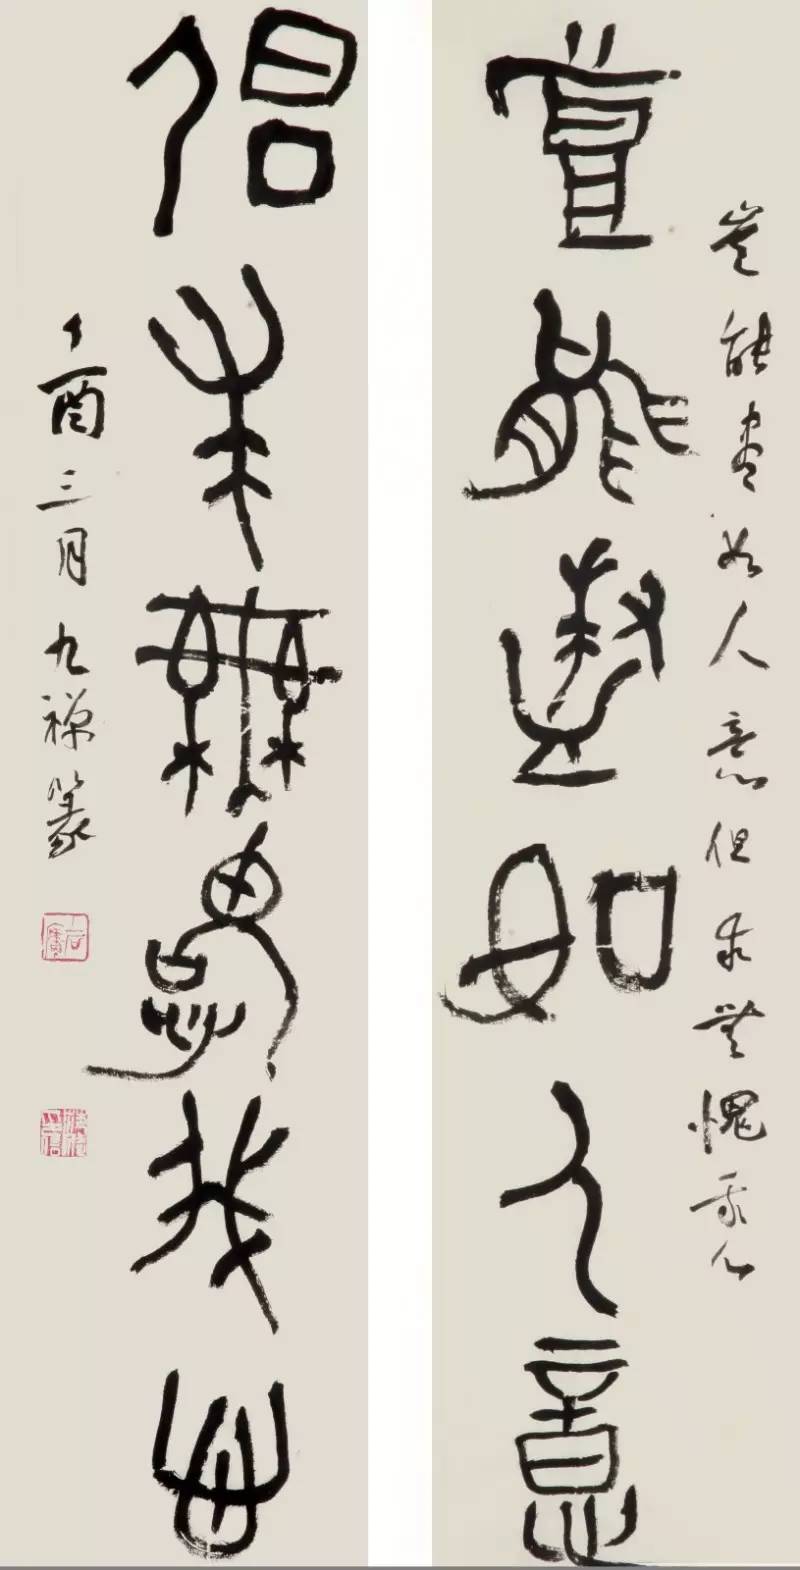 豈能盡如人意但求無愧我心
豈能盡如人意
但求無愧我心
丁酉三月九禅篆